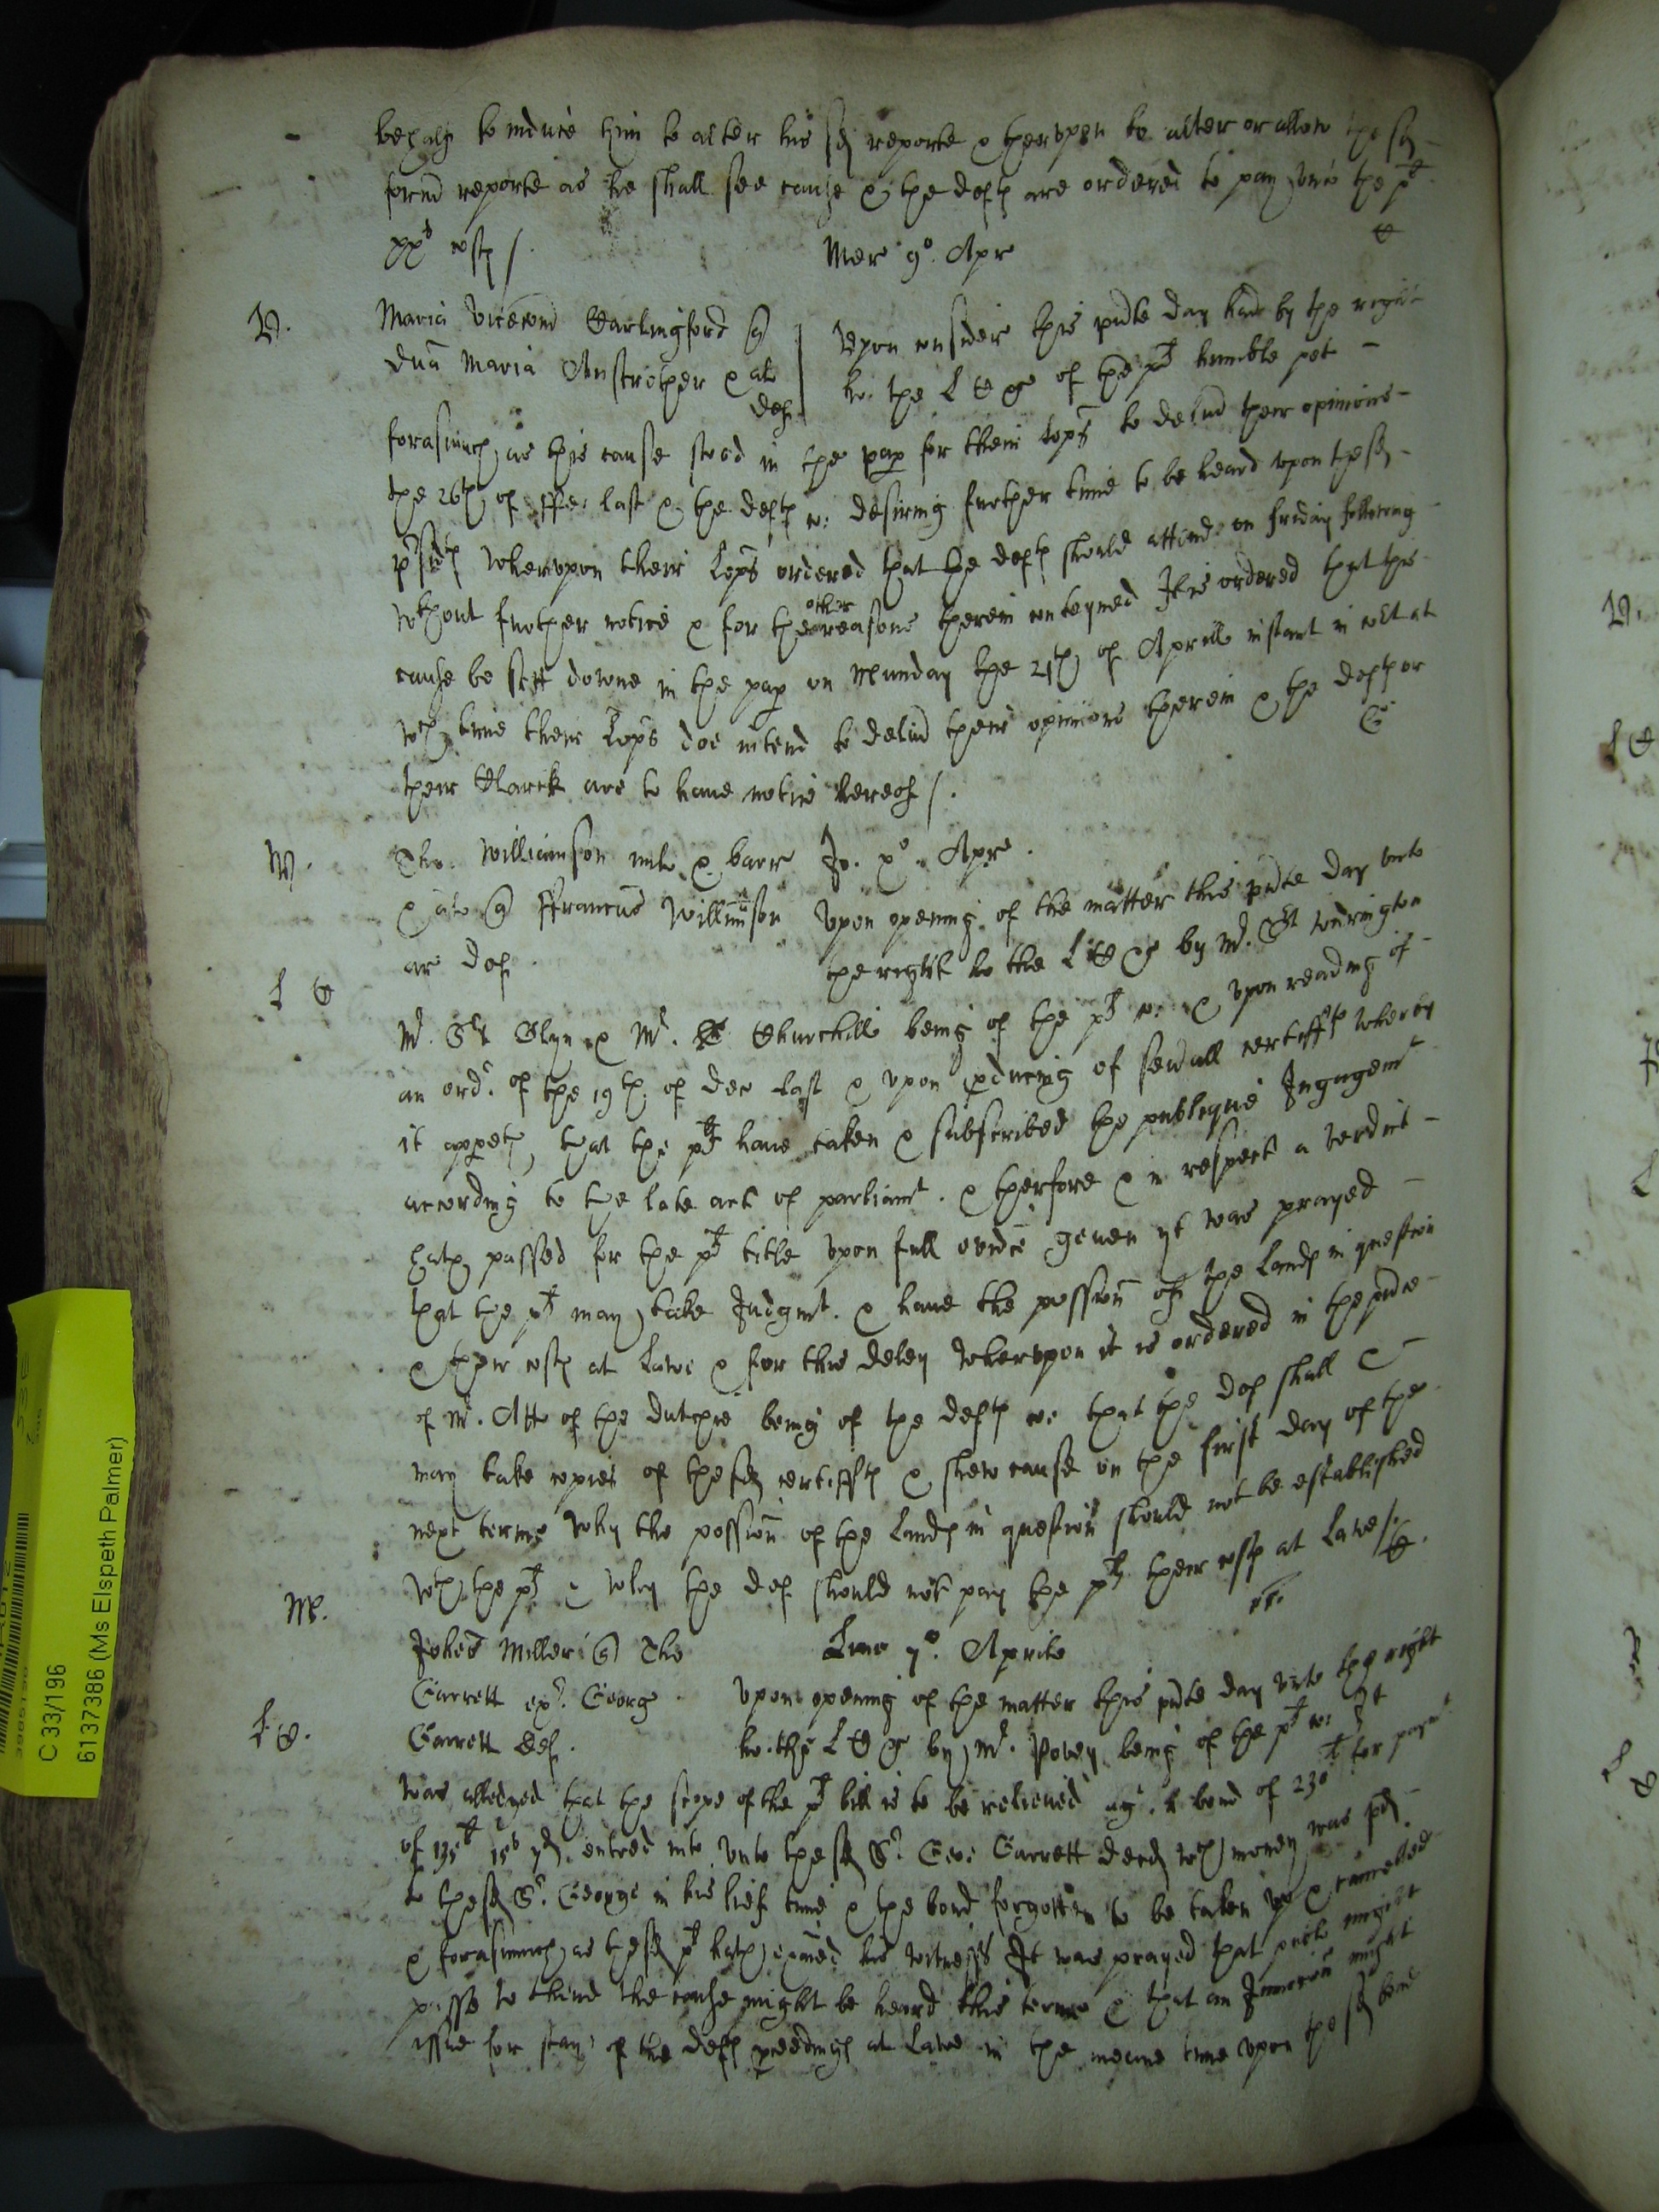 behalf to induce him to alter his sd reporte & therupon to alter or allow the sd
form~ reporte as he shall see cause & the defts are ordered to pay unto the plt
xxs costs /.
Mer 9o. Apr
V.
Maria vicecom Carlingford
dna Maria Anstrother & al
def
Upon consider this pnte day had by the right
ho. the L C G of the plt humble pet
forasmuch as this cause stood in the pap for their Lops to deliv their opinions
the 26th of ffe: last & the defts co: desiring further time to be heard upon the sd
whereupon their Lops ordered that the defts should attend on friday following
wthout further notice & for the other reasons therein conteyned It is ordered that this
cause be sett downe in the pap on Munday the 21th of Aprill instant in Cort at
wch time their Lops doe intend to deliv their opinions therein & the defts or
their Clarck are to have notice hereof /.
W.
Tho. Williamson mil & barr
Jo. xo. Apr.
& al ffrancus Williamson
ar def.
Upon opening of the matter this pnte day unto
the right ho the L C G by Mr. St Conington
L C
Mr. St Glyn & Mr. Churchill being of the plt co: & upon reading of
an ordr. of the 19th of Dec last & upon pducing of sevall certiffts wherby
it appeth, that the plts have taken & subscribed the publique Ingagemt
according to the late act of parliamt. & therfore & in respect a verdict
hath passed for the plt title upon full evidce given yt was prayed
that the plt may take Judgmt. & have the possion of the lands in question
& their costs at lawe & for this delay wherupon it is ordered in the pnce
of Mr. Att of the dutchie being of the defts co: that the def shall &
may take copies of the sd certiffts & shew cause on the first day of the
next terme why the possion of the lands in question should not be established
wth the plt & why the def should not pay the plts their costs at Lawe /.
M.
Johes Miller Tho
Lune 7o. Aprilis
Garrett exr. George
Garrett def.
Upon opening of the matter this pnte day unto the right
L C.
ho. the L C G by Mr. Povey being of the plt co: It
was alledged that the scope of the plt bill is to be relieved agt. a bond of 230l for paymt
of 135l 15s 7d entred into unto the sd Sr. Geo: Garrett decd wch money was pd
to the sd Sr. George in his life time & the bond forgotten to be taken up & cancelled
& forasmuch as the sd plt hath exaied his witnesses It was prayed that publc might
passe to thend the cause might be heard this terme & that an Iniunccon might
issue for stay of the defts pceedings at lawe in the meane time upon the sd bond
C 33/196
6137386 (Ms Elspeth Palmer)